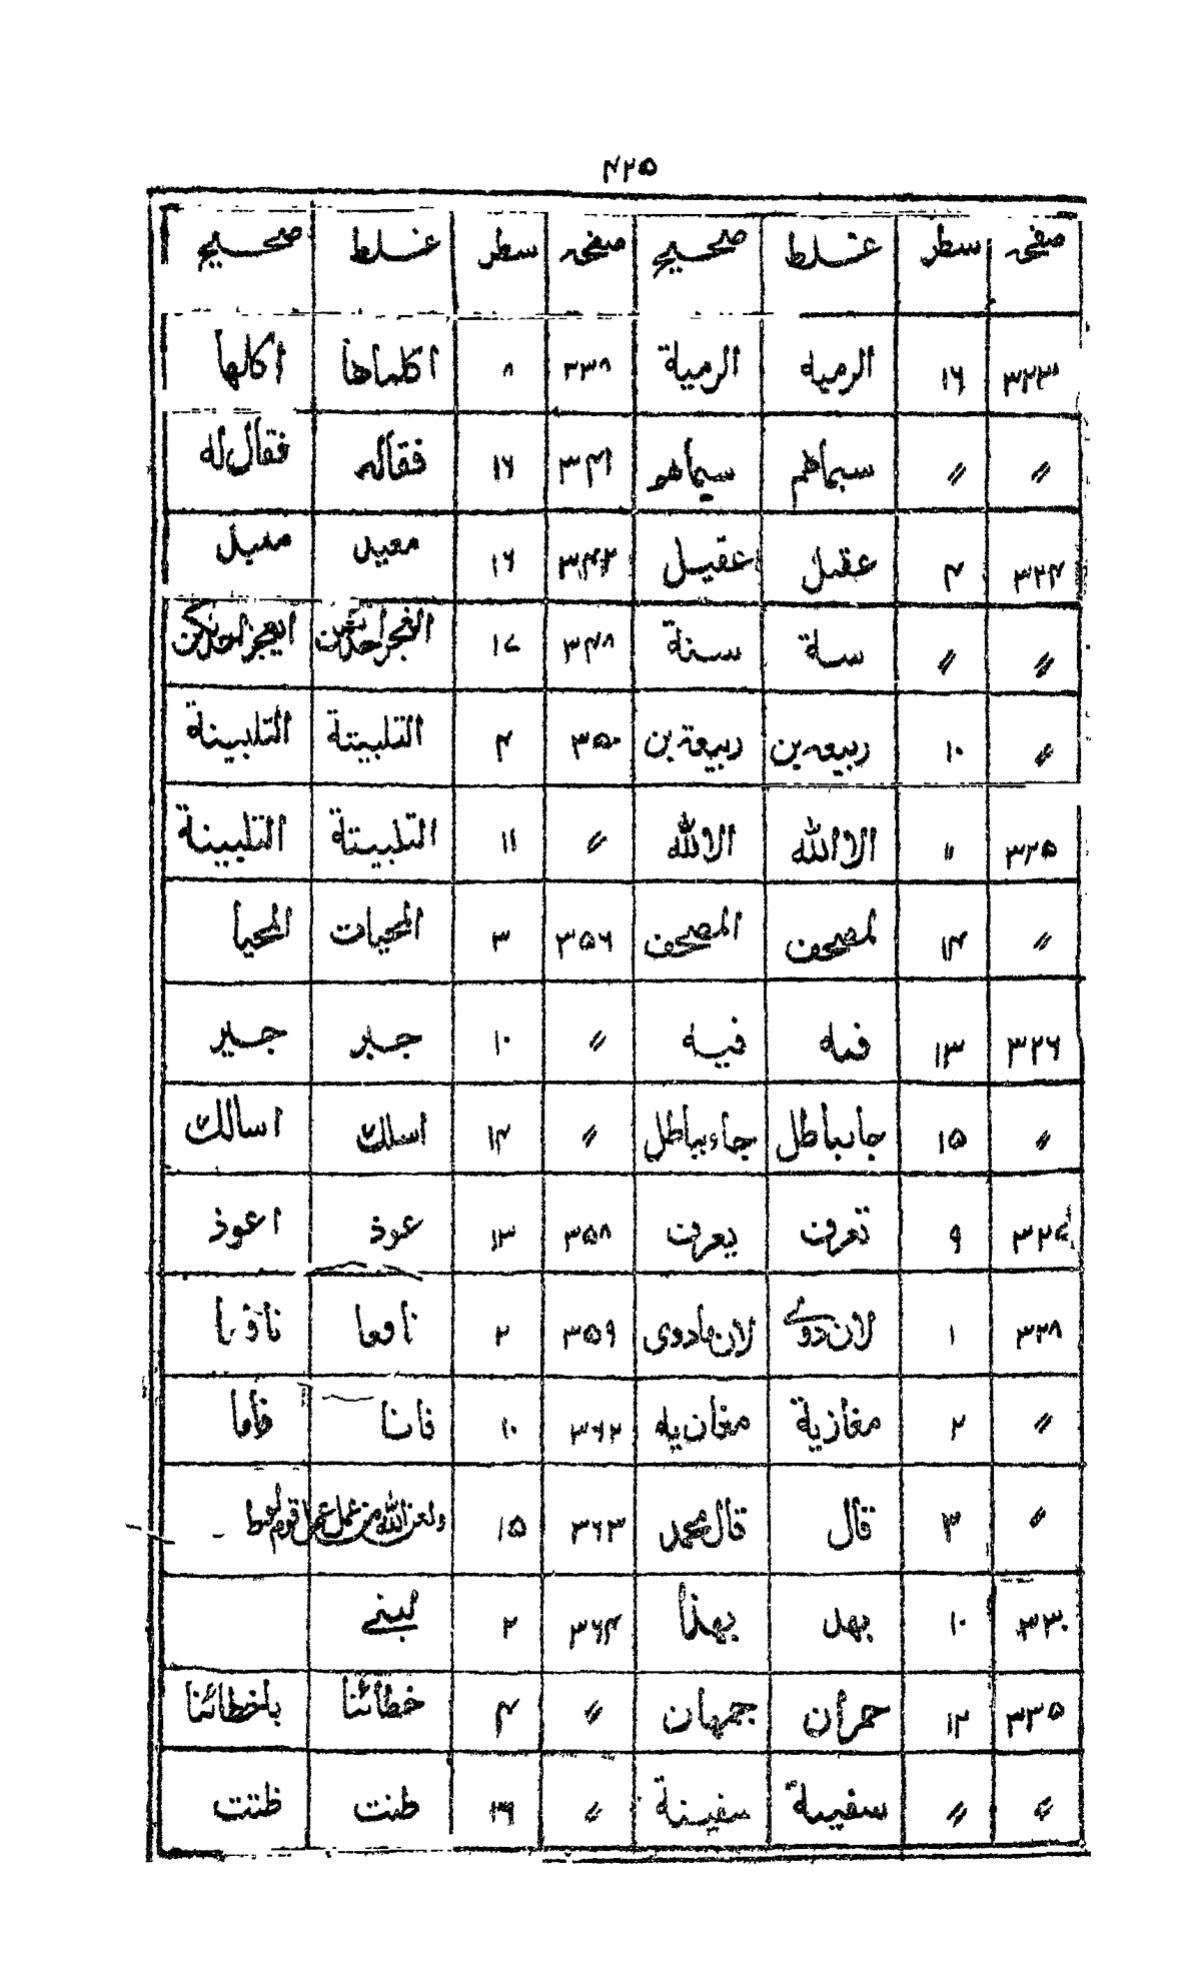 ۴۲۵
صفحہ سطر غلط صحیح صفحہ سطر غلط صحیح
۳۲۳ ۱۶ الرمیه الرمیة ۳۳۸ ۸ اکلماها اکلها
〃 〃 سیماهم سیماهو ۳۴۱ ۱۶ فقاله فقال له
۳۲۴ ۴ عقبل عقیل ۳۴۲ ۱۶ معید
〃 〃 سة سنة ۳۴۸ ۱۷
〃 ۱۰ ربیعه بن ربیعة بن ۳۵۰ ۴ التلبیتة التلبینة
۳۲۵ 〃 الا الله الا لله 〃 ۱۱ التلبیتة التلبینة
〃 ۱۴ لمصحف المصحف ۳۵۶ ۳ المحیات المحیا
۳۲۶ ۱۳ فمه فیه 〃 ۱۰ جبر جیر
〃 ۱۵ جاء بباطل 〃 ۱۴ اسلك اسالك
۳۲۷ ۹ تعرف یعرف ۳۵۸ ۱۳ عوذ اعوذ
۳۲۸ ۱ لان دوے لان مادوی ۳۵۹ ۲ نافعا
〃 ۲ مغازیة مغازیه ۳۶۲ ۱۰ فانا فاما
〃 ۳ قال قال محمد ۳۶۳ ۱۵ ولعن الله من عمل عمل قوم لوط
۳۳۰ ۱۰ بهد بهذا ۳۶۴ ۲ لبنے
۳۳۵ ۱۲ حمران جمهان 〃 ۴ خطائنا باخطائنا
〃 〃 سفیىة سفینة 〃 ۱۶ طنت ظننت